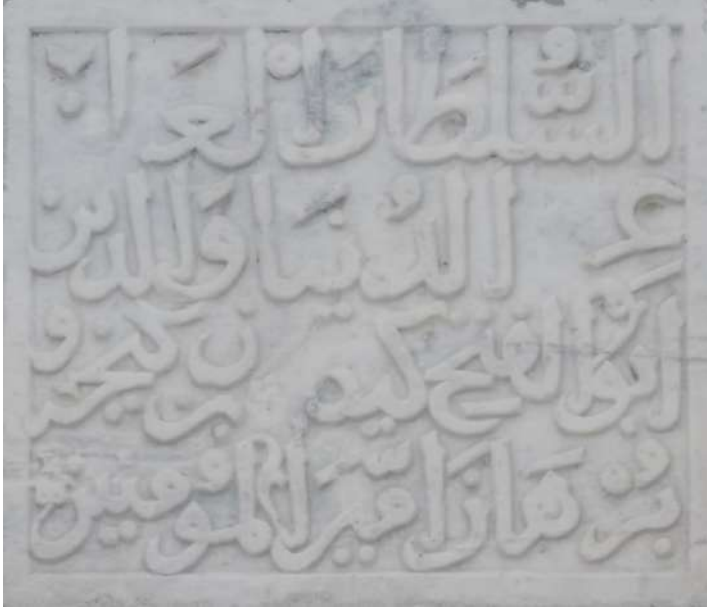 السلطان الغا لب
عز الدنيا والدين
ابو الفتح كيكا بن كيخسرو
برهان امير المؤمنين